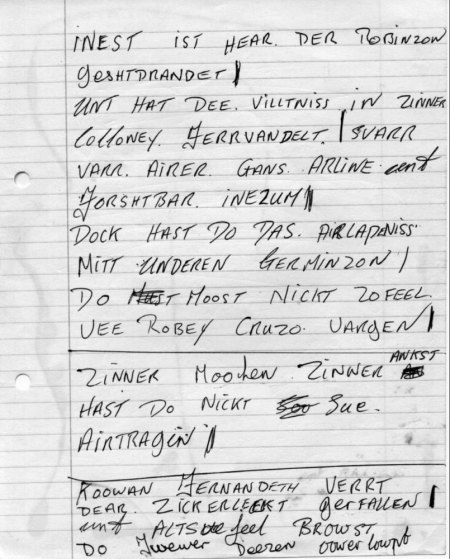 INEST IST HEAR. DER ROBINZON
GESHTDRANDET |
UNT HAT DEE. VILLTNISS IN ZINNER
COLLONEY. FERRVANDELT. | SVARR
VARR. AIRER. GANS. ARLINE unt
FORSHTBAR. INEZUM |
DOCK HAST DO DAS. AIRLADENISS
MITT UNDEREN GERMINZON |
DO MOOST NICKT ZOFEEL.
VEE ROBEY CRUZO. VARGEN |
ZINNER Moochen. ZINNER ANKST
HAST DO NICKT Zue.
AIRTRAGEN |
KOOWAN FERNANDETH VERRT
DEAR. ZICKERLEEKT gerFALLEN |
unt ALTS feel BROWST
DO